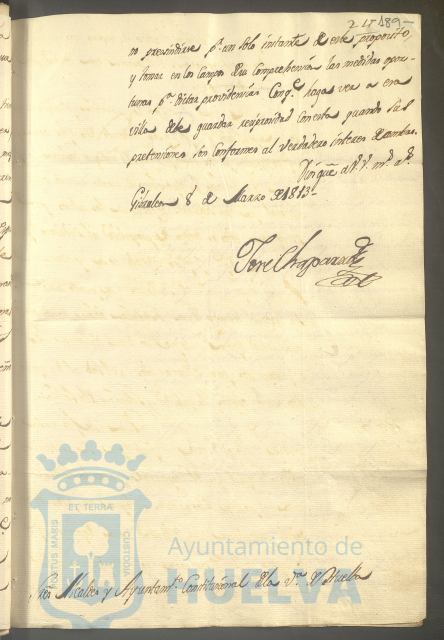 215 189-
no prescindirse pr. un solo instante de este proposito,
y tomar en los Campos de su Comprehension las medidas opor-
tunas pa. dictar providencias Conqe. haga ver a esa
villa debe guardar reciprocidad con esta quando sus
pretensiones son Conformes al verdadero interes de ambas.
Dios gue. a V. V. ms. as.
Gibraleon 8 de Marzo de 1813-
Jose Chaparro
ET TERRÆ
PORTUS MARIS
CUSTODIA
Ayuntamiento de
HUELVA
Sres. Alcaldes y Ayuntamto. Constitucional de la Va. de Huelva